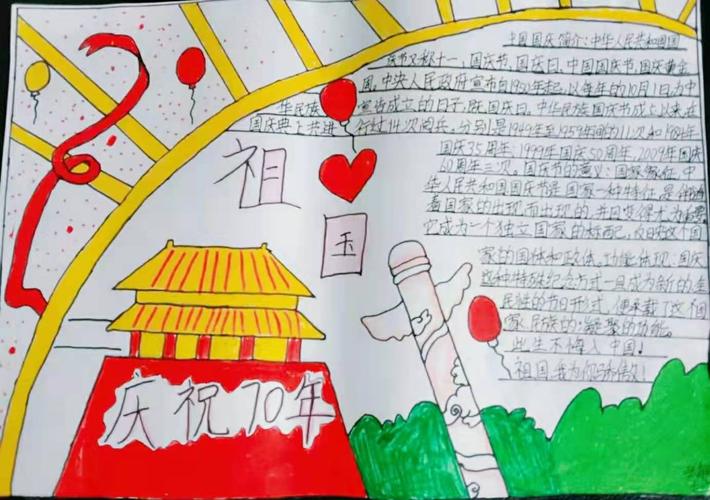 中国国庆简介:中华人民共和国国
庆节又称十一、国庆节、国庆日、中国国庆节、国庆黄金
周。中央人民政府宣布自1950年起,以每年的10月1日为中
华民族宣告成立的日子,既国庆日。中华民族国庆节成立以来,在
国庆典上共进行过14次阅兵。分别是1949年至1959年间的11次和1984年
国庆35周年、1999年国庆50周年、2009年国庆
60周年三次。国庆节的意义:国家象征 中
华人民共和国国庆节是国家一种特征,是伴随
着国家的出现而出现的,并且变得尤为重要
它成为一个独立国家的标配,反映这个国
家的国体和政体。功能体现:国庆
这种特殊纪念方式一旦成为新的,全
民性的节日形式,便承载了这个国
家、民族的凝聚的功能。
此生不悔入中国!
祖国,我为你骄傲!
祖
国
庆祝70年